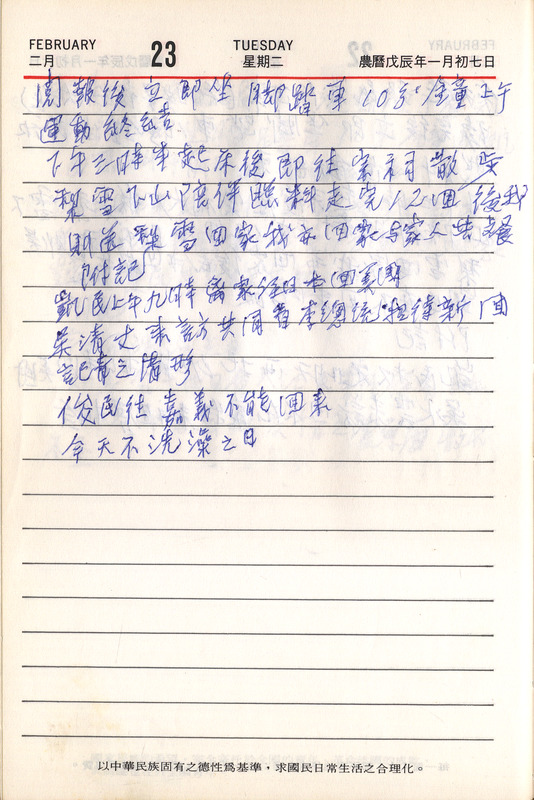 FEBRUARY 23 TUESDAY
二月 星期二 農曆戊辰年一月初七日
閱報後立即坐腳踏車105°全重上午
運動終結
下午三時半起床後即往宗祠散步
梨雪下山陪伴照料走完12回後我
則送梨雪回家我亦回家與家人共晨
附記
凱民上午九時離家經日本回美國
吴清丈來訪共同看李總統招待新聞
記者之情形
俊民往嘉義不能回來
今天不洗澡之日
以中華民族固有之德性爲基準,求國民日常生活之合理化。